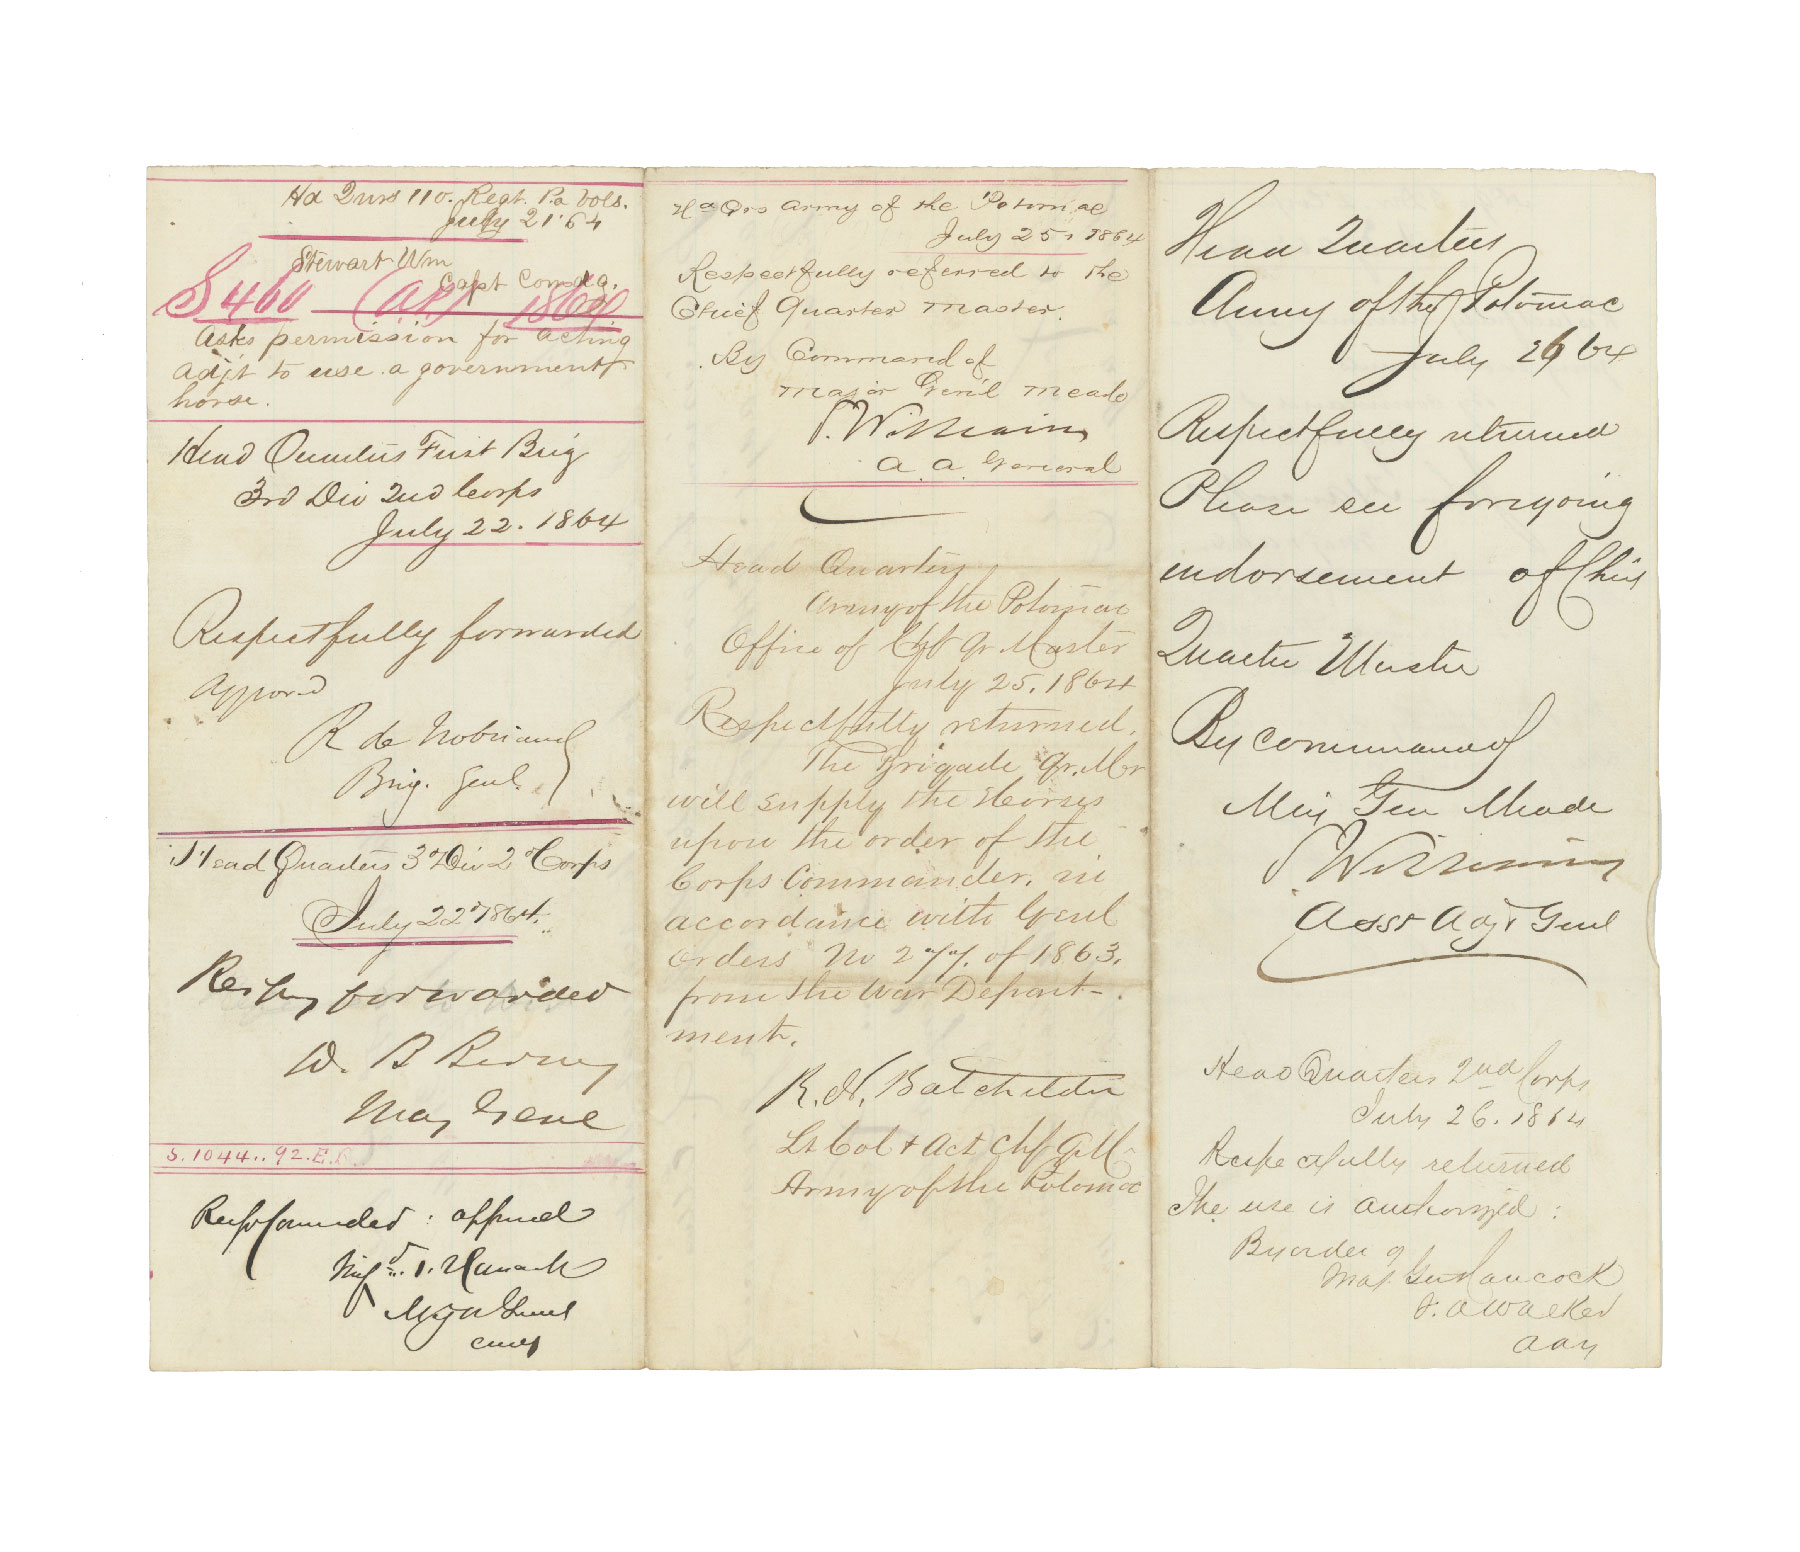 Hd Qurs 110. Regt. Pa Vols.
July 21 '64
Stewart Wm
Capt Comdg.
S 460 (A.P.) 1864
Asks permission for acting
Adjt to use a government
horse.
Head Quarters First Brig
3rd Div 2nd Corps
July 22. 1864
Respectfully forwarded
Approvd
R de Trobriand
Brig. Genl.
Head Quarters 3d Div 2d Corps
July 22d 1864.
Respy forwarded
D. B Birney
Maj Genl
S. 1044.. 92. E.
Resp forwarded : approved
Winf'd. S. Hancock
Maj Genl
Comdg
Hd Qrs Army of the Potomac
July 25, 1864
Respectfully referred to the
Chief Quarter Master.
By Command of
Major Gen'l Meade
S. Williams
A. A. General
Head Quarters
Army of the Potomac
Office of Chf Qr Master
July 25. 1864
Respectfully returned.
The Brigade Qr. Mr
will supply the Horses
upon the order of the
Corps Commander, in
accordance with Genl
Orders No 277. of 1863.
from the War Depart-
ment.
R. N. Batchelder
Lt Col & Act Chf Q M
Army of the Potomac
Head Quarters
Army of the Potomac
July 26 64
Respectfully returned
Please see foregoing
endorsement of Chief
Quarter Master
By command of
Maj Gen Meade
S. Williams
Asst Adjt Genl
Head Quarters 2nd Corps
July 26. 1864
Respectfully returned
The use is authorized :
By order of
Maj. Gen Hancock
F. A Walker
AAG